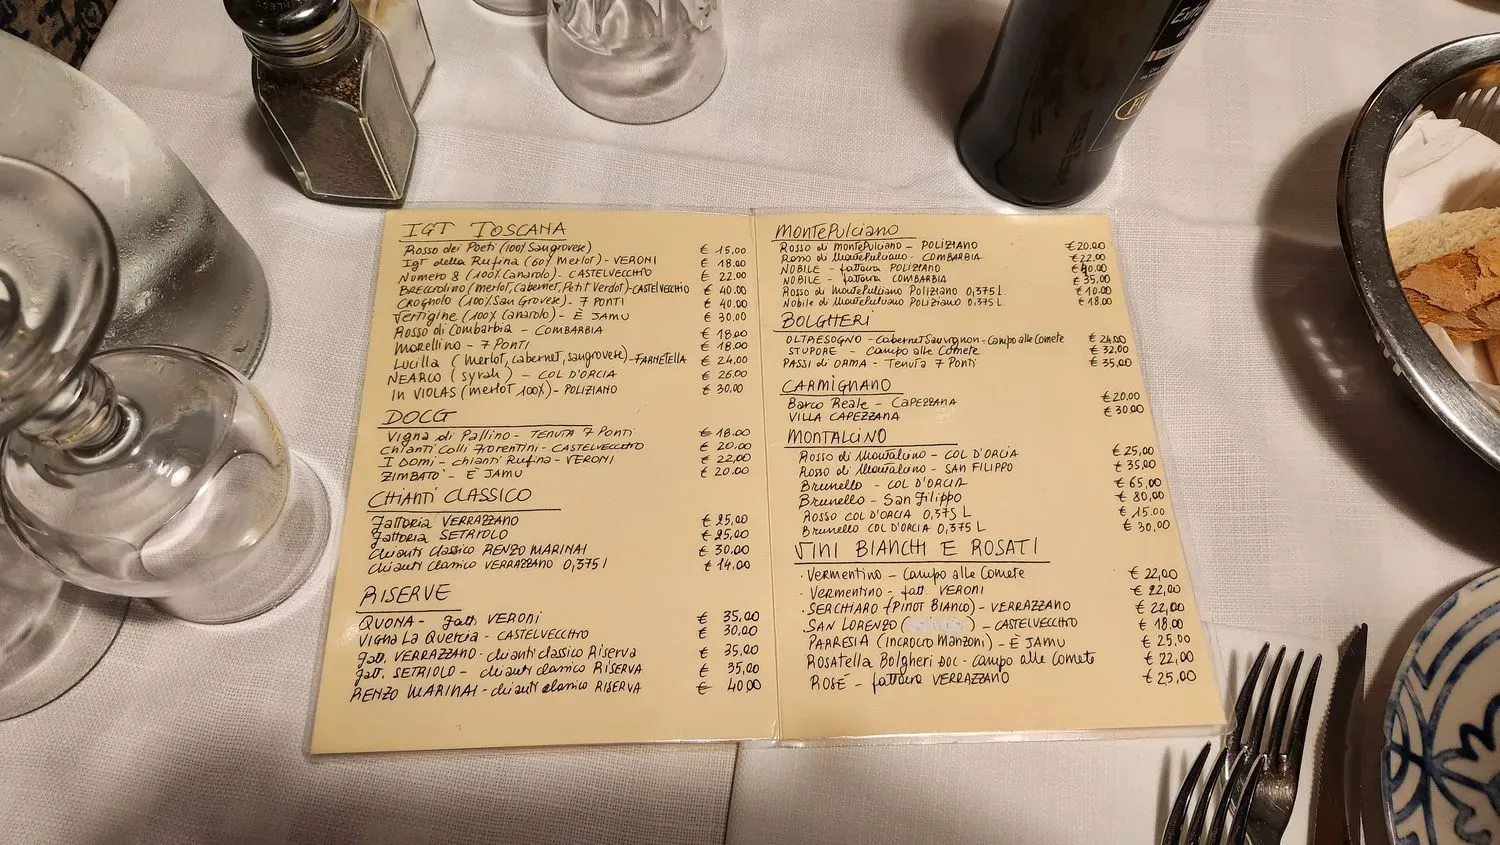 IGT TOSCANA
Rosso dei Poeti (100% Sangrovese) € 15,00
IgT della Rufina (60% Merlot) - VERONI € 18.00
Numero 8 (100% Canarolo) - CASTELVECCHIO € 22.00
BRECCIOLINO (merlot, cabernet, Petit Verdot) - CASTELVECCHIO € 40.00
CROGNOLO (100% San Grovese) - 7 PONTI € 40.00
Vertigine (100% Canarolo) - È JAMU € 30,00
Rosso di Combarbia - COMBARBIA € 18.00
Morellino - 7 PONTI € 18.00
Lucilla (merlot, cabernet, sangrovese) - FARNETELLA € 24.00
NEARCO (syrah) - COL D'ORCIA € 26.00
IN VIOLAS (merlot 100%) - POLIZIANO € 30,00
DOCG
Vigna di Pallino - TENUTA 7 PONTI € 18.00
Chianti Colli Fiorentini - CASTELVECCHIO € 20,00
I DOMI - chianti Rufina - VERONI € 22,00
ZIMBATO' - È JAMU € 20.00
CHIANTI CLASSICO
Fattoria VERRAZZANO € 25,00
Fattoria SETRIOLO € 25,00
Chianti classico RENZO MARINAI € 30.00
Chianti classico VERRAZZANO 0,375 l € 14.00
RISERVE
QUONA - fatt. VERONI € 35,00
Vigna La Quercia - CASTELVECCHIO € 30,00
fatt. VERRAZZANO - chianti classico Riserva € 35,00
fatt. SETRIOLO - chianti classico RISERVA € 35,00
RENZO MARINAI - chianti classico RISERVA € 40,00
MONTEPULCIANO
ROSSO di MONTEPULCIANO - POLIZIANO € 20.00
Rosso di Montepulciano - COMBARBIA € 22,00
NOBILE - fattoria POLIZIANO € 40.00
NOBILE - fattoria COMBARBIA € 35,00
Rosso di Montepulciano Poliziano 0,375 L € 10.00
Nobile di Montepulciano Poliziano 0,375 L € 18.00
BOLGHERI
OLTRESOGNO - Cabernet Sauvignon - Campo alle Comete € 24,00
STUPORE - Campo alle Comete € 32,00
PASSI di ORMA - Tenuta 7 Ponti € 35,00
CARMIGNANO
Barco Reale - CAPEZZANA € 20,00
VILLA CAPEZZANA € 30,00
MONTALCINO
Rosso di Montalcino - COL D'ORCIA € 25,00
Rosso di Montalcino - SAN FILIPPO € 35,00
Brunello - COL D'ORCIA € 65,00
Brunello - San Filippo € 80,00
ROSSO COL D'ORCIA 0,375 L € 15.00
Brunello COL D'ORCIA 0,375 L € 30,00
VINI BIANCHI E ROSATI
· Vermentino - Campo alle Comete € 22,00
· Vermentino - fatt. VERONI € 22,00
· SERCHIARO (PINOT BIANCO) - VERRAZZANO € 22,00
SAN LORENZO ( ) - CASTELVECCHIO € 18.00
PARRESIA (INCROCIO Manzoni) - È JAMU € 25,00
Rosatella Bolgheri DOC - campo alle Comete € 22,00
ROSÉ - fattoria VERRAZZANO € 25,00